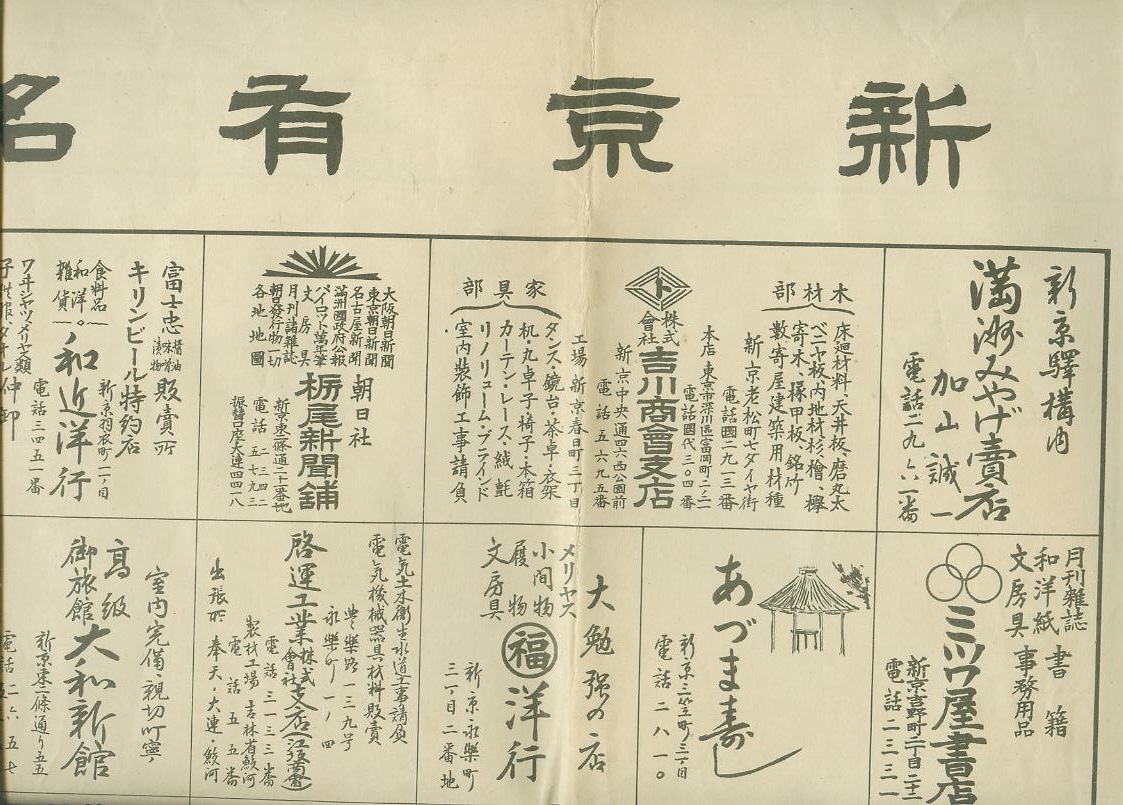 新京有名
新京驛構內
満洲みやげ賣店
加山誠一
電話二九六一番
木材部
床廻材料、天井板、磨丸太
ベニヤ板、內地材杉、檜、欅
寄木、縁甲板、銘竹
數寄屋建築用材種
新京老松町七ダイヤ街
電話國二九一三番
本店 東京市深川區富岡町二ノ二
電話國代三〇四番
ト
株式會社
吉川商會支店
新京中央通四六西公園前
電話五六九五番
家具部
工場 新京春日町三丁目
タンス・鏡台・茶卓・衣架
机・丸卓子椅子・本箱
カーテン・レース・絨氈
リノリューム・ブラインド
室內裝飾工事請負
大阪朝日新聞
東京朝日新聞
名古屋新聞
滿洲國政府公報
パイロット萬年筆
文房具
月刊諸雜誌
朝日發行物一切
各地地圖
朝日社
栃尾新聞舖
新京東二條通二十番地
電話 二三四二
五七九三
振替口座大連四四一八
富士忠 醬油 味噌 漬物 販賣所
キリンビール特約店
食料品
和洋
雜貨
和近洋行
新京羽衣町一ノ目
電話三四五一番
ワヰシャツメリヤス類
仲卸
月刊雜誌
和洋紙
文房具
書籍
事務用品
ミツワ屋書店
新京吉野町二丁目二十二
電話二三三一
あづま壽し
新京三笠町三丁目
電話二八一〇
大勉强の店
メリヤス
小間物
履物
文房具
福洋行
新京永樂町
三丁目二番地
電気土木衛生水道工事請負
電気機械器具材料販賣
豊樂路一三九号
永樂町一ノ四
啓運工業株式會社支店
電話三一三三番
電話五五番
製材工場 吉林省敷河
出張所 奉天・大連・敷河
室內完備・親切叮寧
高級
御旅館
大和新館
新京東二條通り五五
電話二六五七